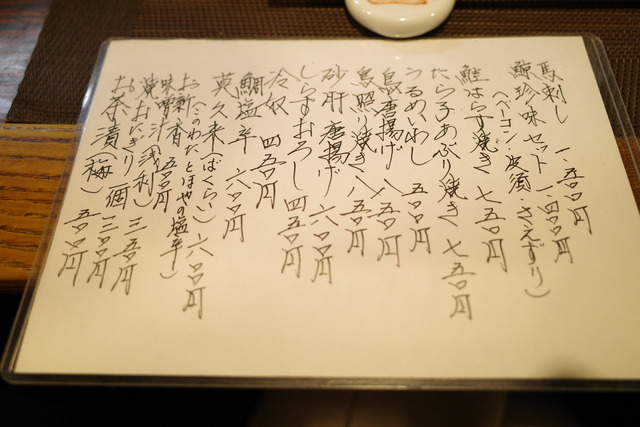 馬刺し 一、五〇〇円
鯨珍味セット 一、四〇〇円
(ベーコン、皮須、さえずり)
鮭はらす焼き 七五〇円
たら子あぶり焼き 七五〇円
うるめいわし 五〇〇円
鳥唐揚げ 八五〇円
鳥照り焼き 八五〇円
砂肝唐揚げ 六〇〇円
しらすおろし 四五〇円
冷奴 四五〇円
鯛塩辛 六〇〇円
莫久来(ばくらい) 六〇〇円
(このわたとほやの塩辛)
お新香 五〇〇円
味噌汁
焼おにぎり一個 三五〇円
お茶漬(梅) 五〇〇円